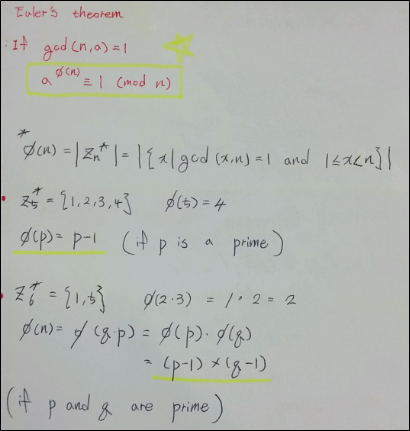 Euler's theorem
· If gcd(n,a)=1
a^ø(n) ≡ 1 (mod n)
* ø(n) = |Zn*| = |{x|gcd(x,n)=1 and 1≤x<n}|
• Z5* = {1,2,3,4} ø(5)=4
ø(p)= p-1 (if p is a prime)
• Z6* = {1,5} ø(2·3) = 1·2 = 2
ø(n)= ø(q·p) = ø(p)·ø(q)
= (p-1)×(q-1)
(if p and q are prime)